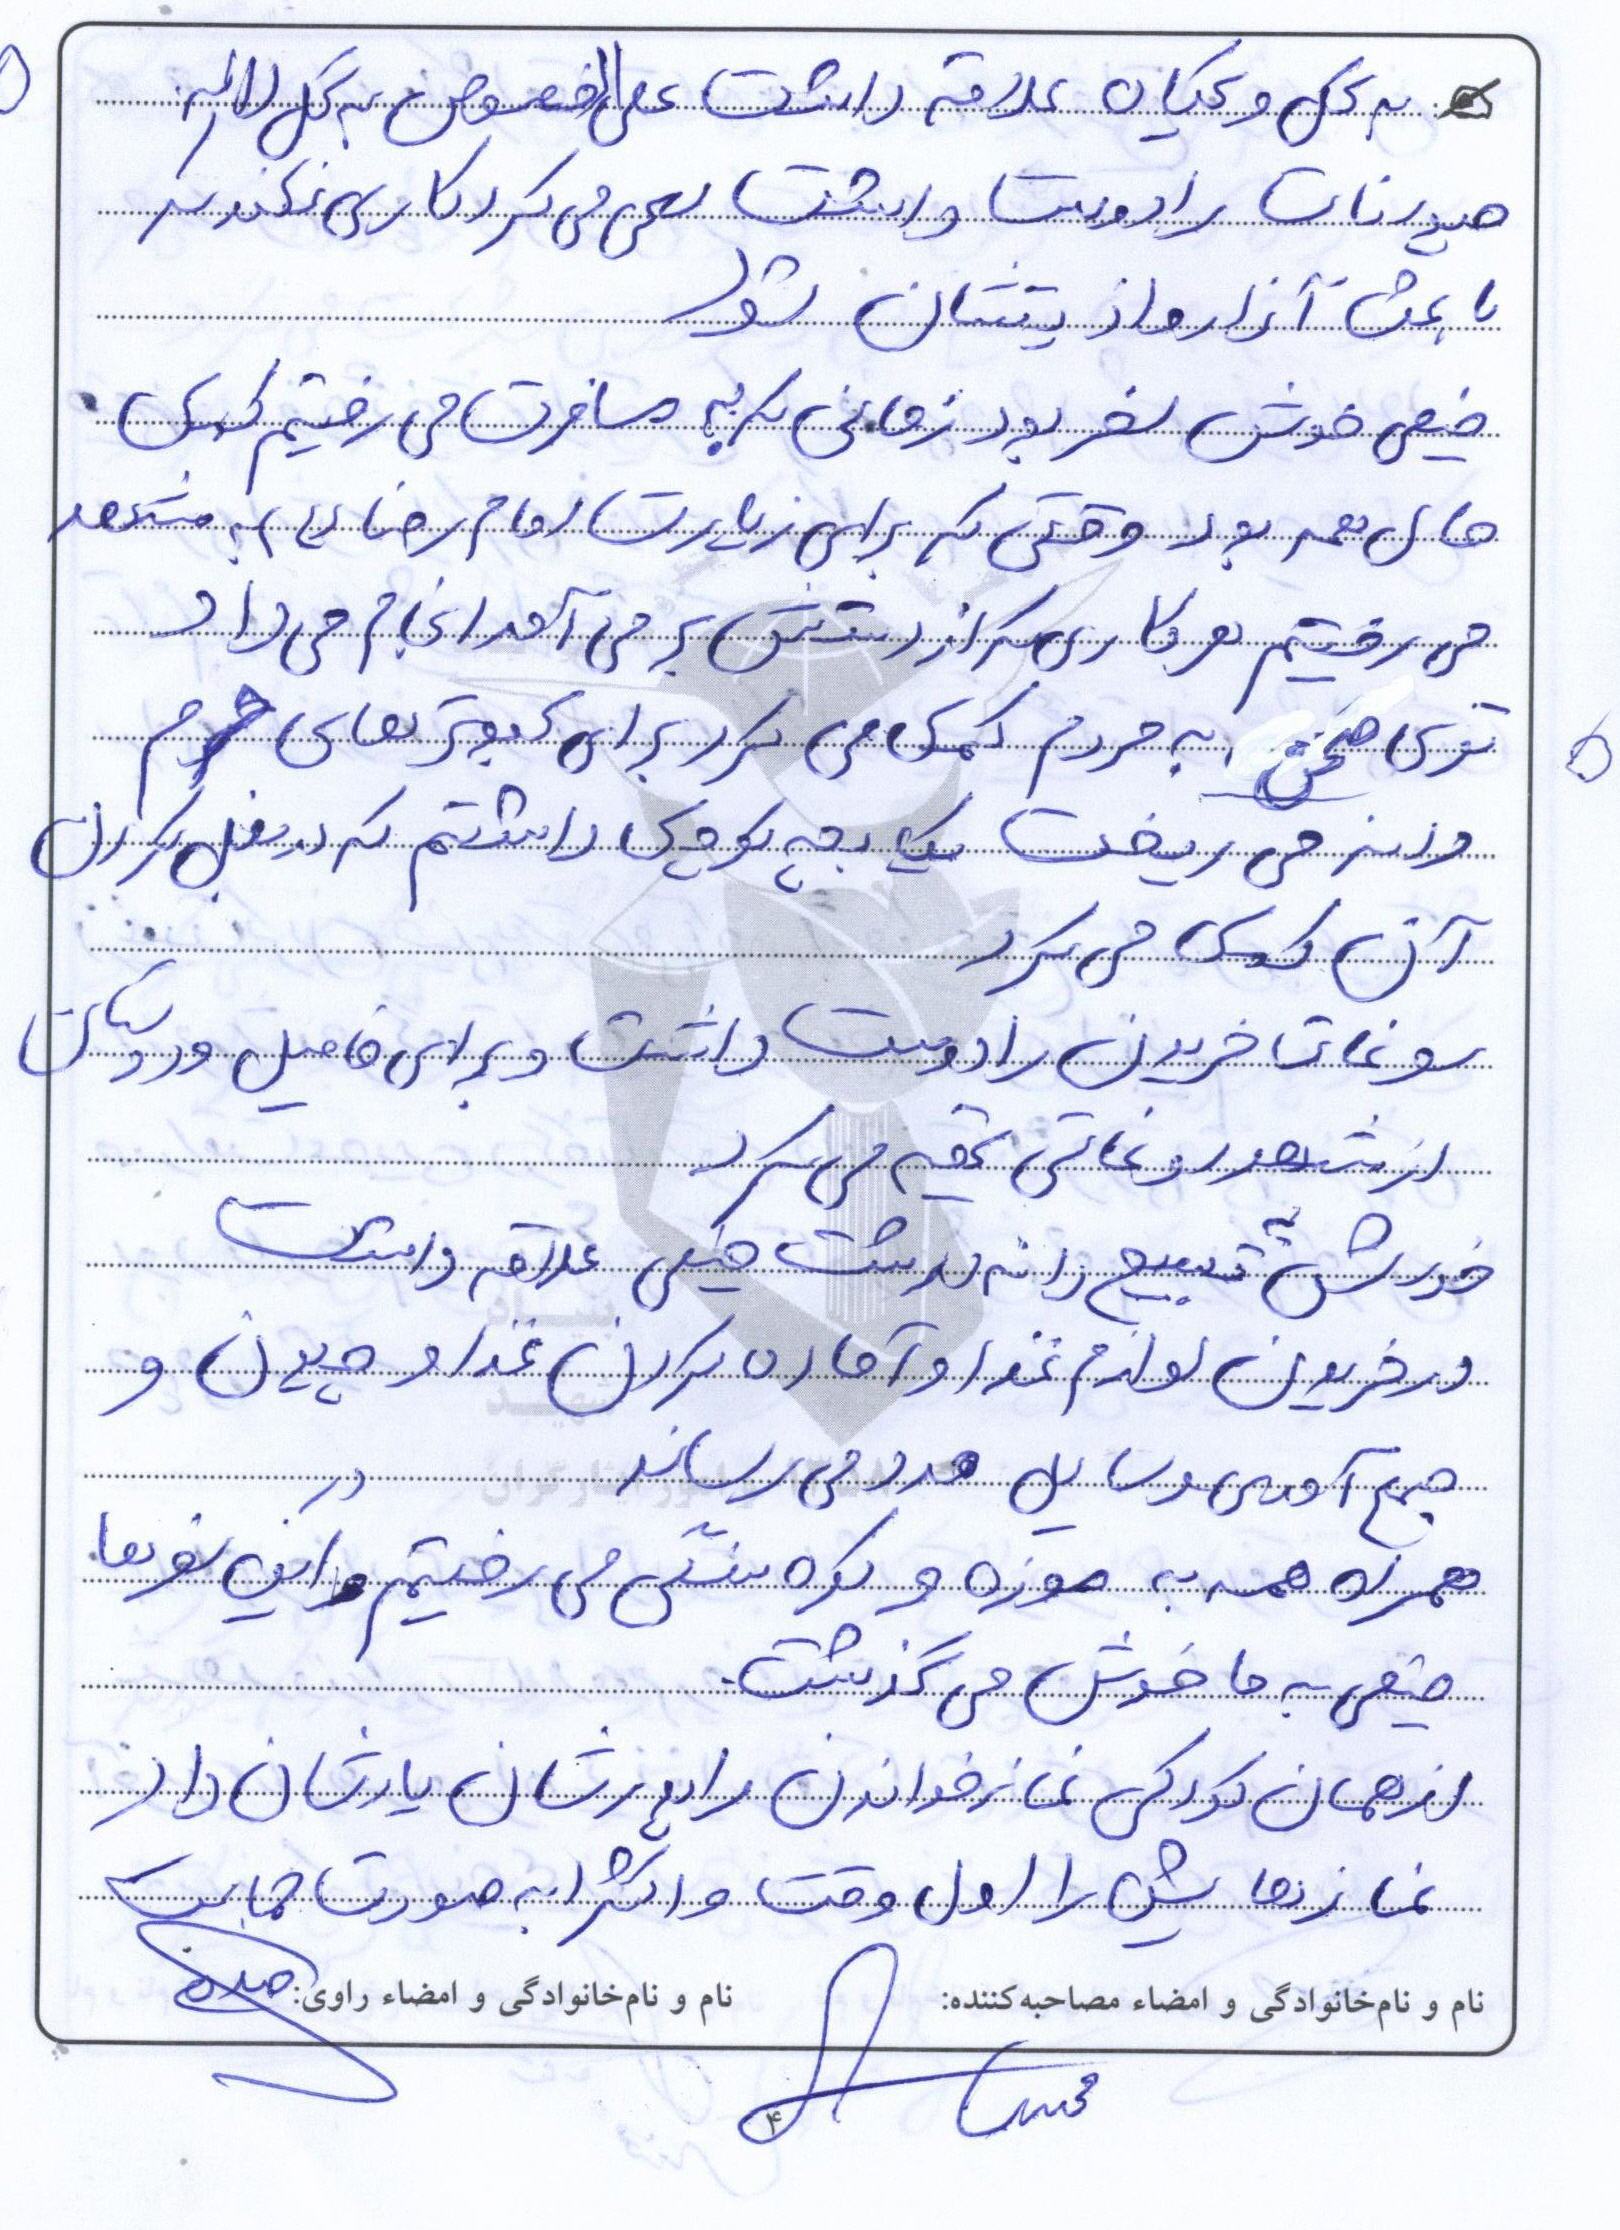 به گل و گیاه علاقه داشت علی الخصوص به گل لاله
حیوانات را دوست داشت سعی می کرد کاری نکند که
باعث آزار و اذیتشان شود
خیلی خوش سفر بود زمانی که به مسافرت می رفتیم کمک
حال همه بود وقتی که برای زیارت امام رضا (ع) به مشهد
می رفتیم هر کاری که از دستش بر می آمد انجام می داد
توی صحن به مردم کمک می کرد برای کبوترهای حرم
دانه می ریخت یک بچه کوچک داشتیم که در بغل کردن
آن کمک می کرد
سوغات خریدن را دوست داشت و برای فامیل و دوستان
از مشهد سوغاتی تهیه می کرد
خودش به تسبیح دانه درشت خیلی علاقه داشت
در خریدن لوازم غذا و آماده کردن غذا و چیدن و
جمع آوری وسایل مدد می رساند
همراه همه به موزه و کوه سنگی می رفتیم در این سفرها
خیلی به ما خوش می گذشت.
از همان کودکی نماز خواندن را پدرشان یادشان داد
نمازهایش را اول وقت و اکثرا به صورت جماعت
نام و نام‌خانوادگی و امضاء مصاحبه‌کننده: نام و نام‌خانوادگی و امضاء راوی:
۴